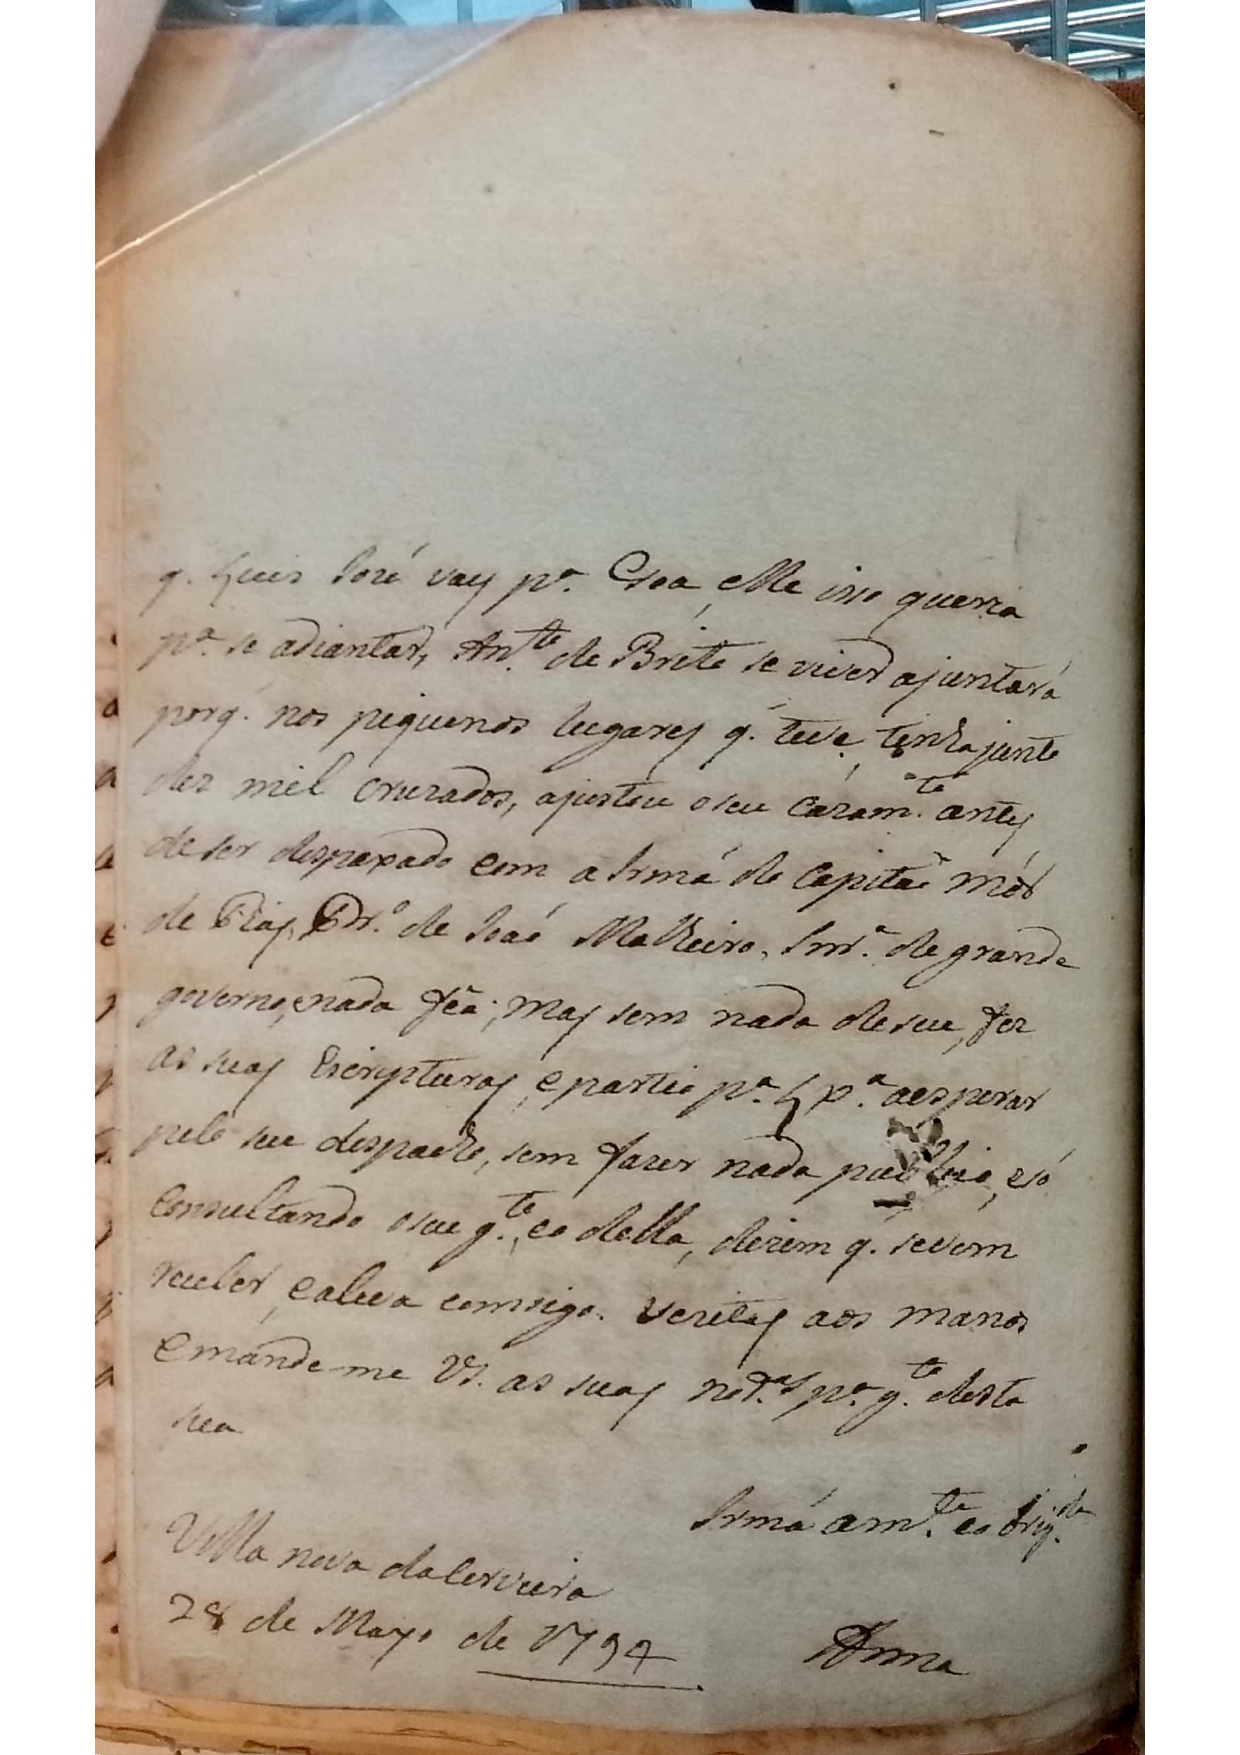 q. Luis José vay pª. Goa, elle isso queria
pª. se adiantar, An.to de Brito se viver ajuntará
porq. nos piquenos lugares q. teve, tinha junto
dez mil cruzados, ajustou o seu Cazam.to antes
de ser despaxado com a Irmá do Capitaõ Mór
de Joaõ Malheiro, Snr.ª de grande
governo, e nada fêa; Mas sem nada de seu, fez
as suas Escripturas, e partio pª. Lxª. a esperar
pelo seu despacho, sem fazer nada publico, e só
consultando o seu g.to, e o della, dizem q. se vem
receber, e a leva comsigo. Vezitas aos Manos
e mande-me VS. as suas not.as pª. g.to desta
sua
Irmá am.te e obrig.da
Villa nova da Cerveira
28 de Mayo de 1794
Anna